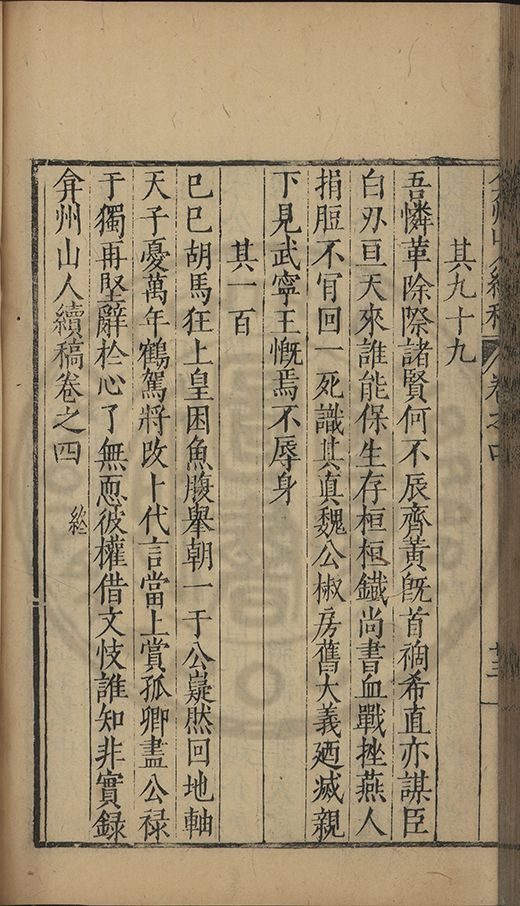 弇州山人續稿 卷之四 廿三
其九十九
吾憐革除際諸賢何不辰齊黃旣首禍希直亦謀臣
白刃亘天來誰能保生存桓桓鐵尚書血戰挫燕人
捐脰不肎回一死識其真魏公椒房舊大義廼滅親
下見武寧王慨焉不辱身
其一百
巳巳胡馬狂上皇困魚腹舉朝一于公嶷然回地軸
天子憂萬年鶴駕將改卜代言當上賞孤卿盡公祿
于獨再堅辭於心了無恧彼權借文忮誰知非實錄
弇州山人續稿卷之四 終